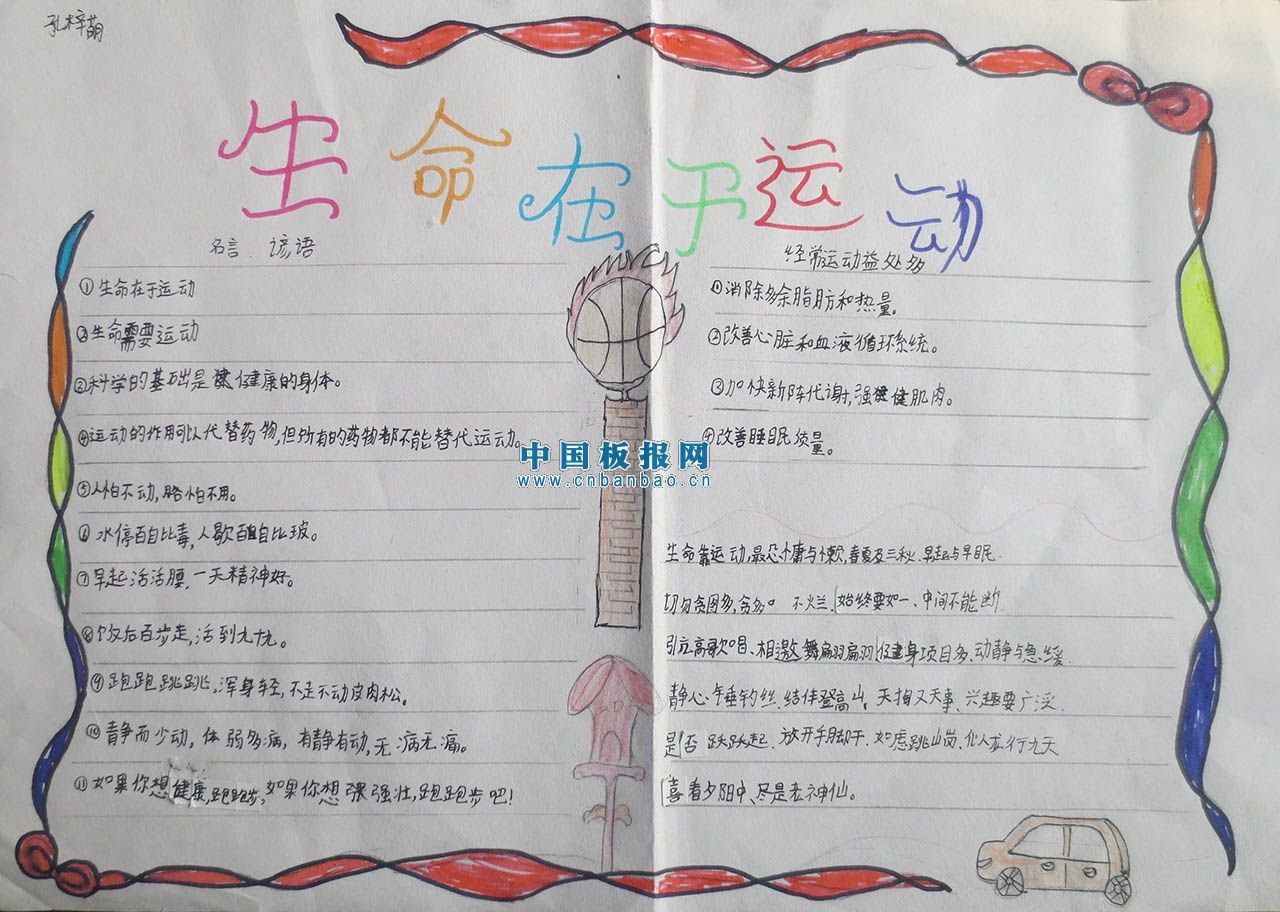 孔梓萌
生命在于运动
名言 谚语
①生命在于运动
②生命需要运动
③科学的基础是健康的身体。
④运动的作用可以代替药物,但所有的药物都不能替代运动。
⑤人怕不动,脑怕不用。
⑥水停百日生毒,人歇百日生
⑦早起活活腰,一天精神好。
⑧饭后百步走,活到九十九。
⑨跑跑跳跳,浑身轻,不走不动皮肉松。
⑩静而少动,体弱多病,有静有动,无病无痛。
⑪如果你想健康,跑跑步,如果你想强壮,跑跑步吧!
中国板报网
www.cnbanbao.cn
经常运动益处多
①消除多余脂肪和热量。
②改善心脏和血液循环系统。
③加快新陈代谢,强健肌肉。
④改善睡眠质量。
生命靠运动,最忌慵与懒,春夏及三秋、早起与早眠.
切勿贪图多,贪多 不 始终要如一、中间不能断.
引亢高歌唱、相邀舞翩翩 健身项目多、动静与急缓.
静心 垂钓丝、结伴登高山。天 又天事、兴趣要广泛.
跃跃起、放开手脚干、如 跳山岗、 行九天
喜看夕阳中、尽是老神仙。